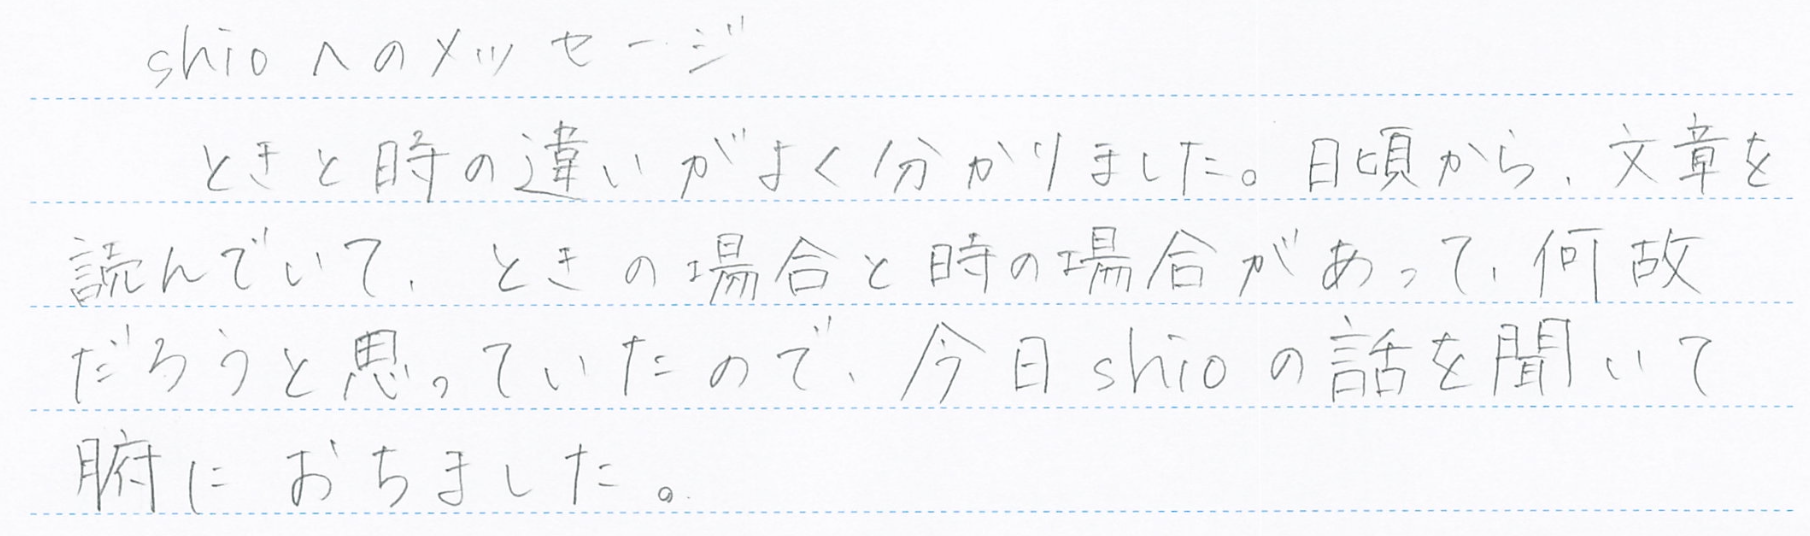 shioへのメッセージ
ときと時の違いがよく分かりました。日頃から、文章を
読んでいて、ときの場合と時の場合があって、何故
だろうと思っていたので、今日shioの話を聞いて
腑におちました。